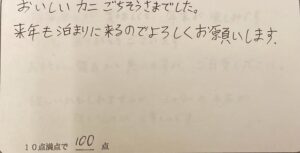 おいしいカニごちそうさまでした。
来年も泊まりに来るのでよろしくお願いします。
10点満点で 100 点